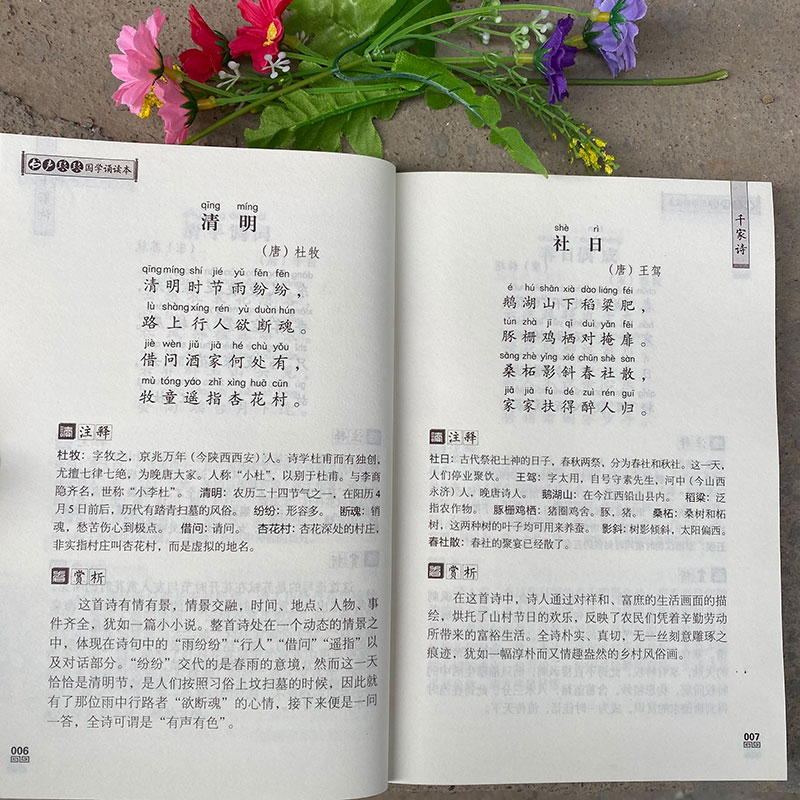 七户跤跤国学诵读本
qīng míng
清明
（唐）杜牧
qīng míng shí jié yǔ fēn fēn
清明时节雨纷纷，
lù shàng xíng rén yù duàn hún
路上行人欲断魂。
jiè wèn jiǔ jiā hé chù yǒu
借问酒家何处有，
mù tóng yáo zhǐ xìng huā cūn
牧童遥指杏花村。
注释
杜牧：字牧之，京兆万年（今陕西西安）人。诗学杜甫而有独创，
尤擅七律七绝，为晚唐大家。人称“小杜”，以别于杜甫。与李商
隐齐名，世称“小李杜”。 清明：农历二十四节气之一，在阳历
4月5日前后，历代有踏青扫墓的风俗。 纷纷：形容多。 断魂：销
魂，愁苦伤心到极点。 借问：请问。 杏花村：杏花深处的村庄，
非实指村庄叫杏花村，而是虚拟的地名。
赏析
这首诗有情有景，情景交融，时间、地点、人物、事
件齐全，犹如一篇小小说。整首诗处在一个动态的情景之
中，体现在诗句中的“雨纷纷”“行人”“借问”“遥指”以
及对话部分。“纷纷”交代的是春雨的意境，然而这一天
恰恰是清明节，是人们按照习俗上坟扫墓的时候，因此就
有了那位雨中行路者“欲断魂”的心情，接下来便是一问
一答，全诗可谓是“有声有色”。
006
千家诗
shè rì
社日
（唐）王驾
é hú shān xià dào liáng féi
鹅湖山下稻粱肥，
tún zhà jī qī duì yǎn fēi
豚栅鸡栖对掩扉。
sāng zhè yǐng xié chūn shè sàn
桑柘影斜春社散，
jiā jiā fú dé zuì rén guī
家家扶得醉人归。
注释
社日：古代祭祀土神的日子，春秋两祭，分为春社和秋社。这一天，
人们停业聚饮。 王驾：字太用，自号守素先生，河中（今山西
永济）人，晚唐诗人。 鹅湖山：在今江西铅山县内。 稻粱：泛
指农作物。 豚栅鸡栖：猪圈鸡舍。豚，猪。 桑柘：桑树和柘
树，这两种树的叶子均可用来养蚕。 影斜：树影倾斜，太阳偏西。
春社散：春社的聚宴已经散了。
赏析
在这首诗中，诗人通过对祥和、富庶的生活画面的描
绘，烘托了山村节日的欢乐，反映了农民们凭着辛勤劳动
所带来的富裕生活。全诗朴实、真切，无一丝刻意雕琢之
痕迹，犹如一幅淳朴而又情趣盎然的乡村风俗画。
007